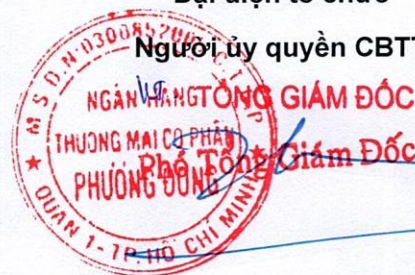 Đại diện tổ chức
Người ủy quyền CBTT
TỔNG GIÁM ĐỐC
Phó Tổng Giám Đốc
M.S.D.N:03008520
NGÂN HÀNG
THƯƠNG MẠI CỔ PHẦN
PHƯƠNG ĐÔNG
QUẬN 1-TP.HỒ CHÍ MINH